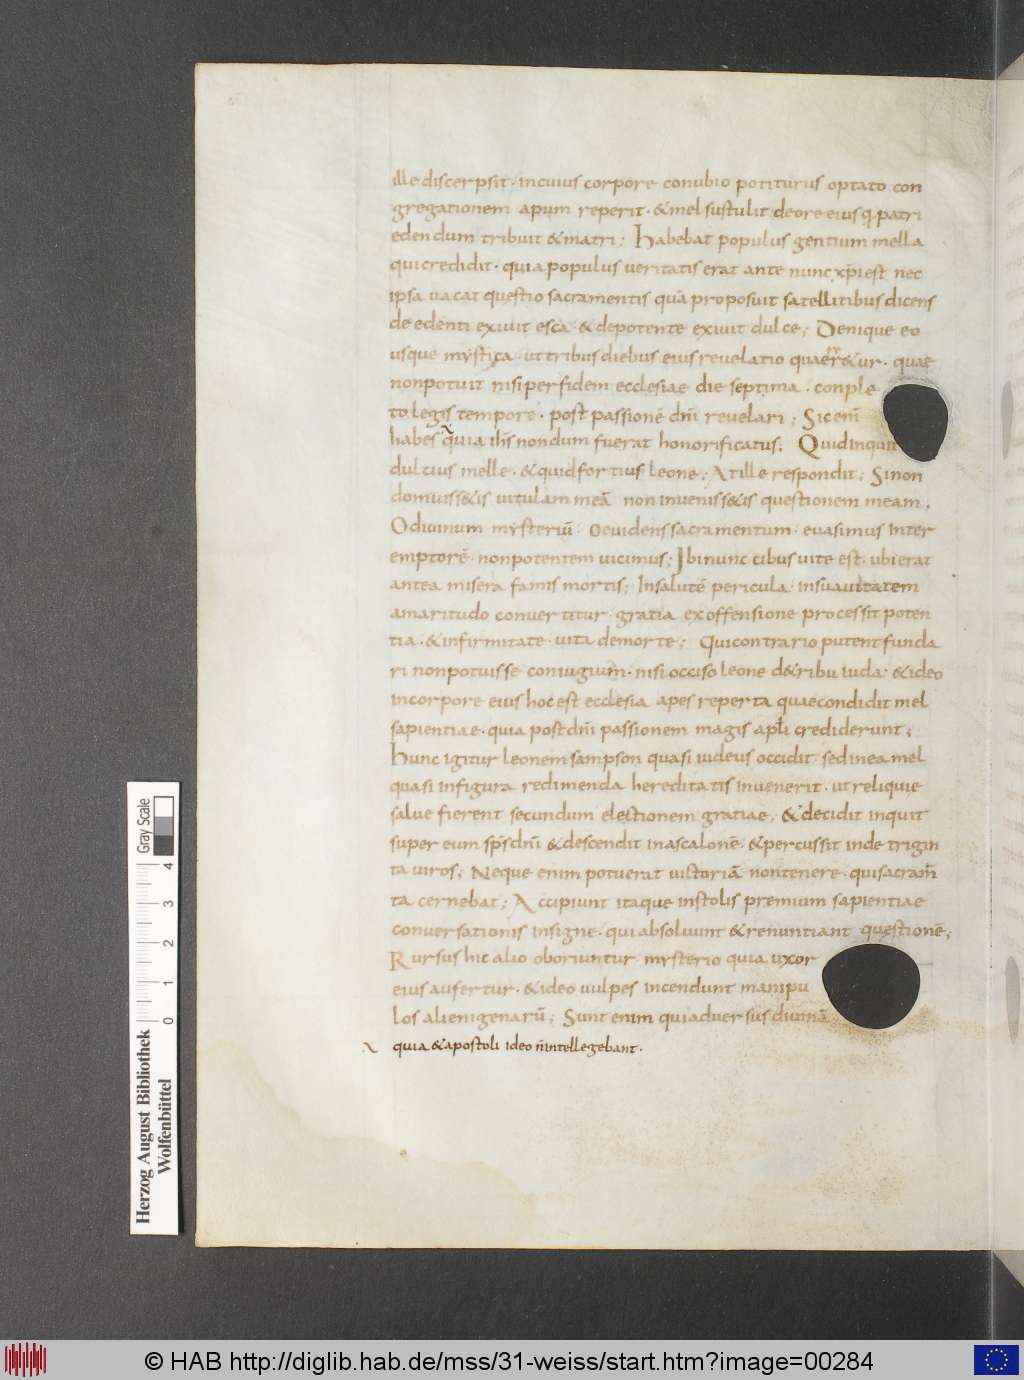 ille discerpsit · incuius corpore conubio potiturus optato con
gregationem apum reperit · & mel sustulit deore eius q; patri
edendum tribuit & matri; Habebat populus gentium mella
qui credidit · quia populus veritatis erat ante nunc xp̄i est nec
ipsa vacat questio sacramentis quā proposuit satellitibus dicens
de edenti exivit esca · & depotente exivit dulce; Denique eo
usque mystica · ut tribus diebus eius revelatio quaer&ur · quae
nonpotuit nisi per fidem ecclesiae die septima · conple
to legis tempore · post passionē dn̄i revelari; Sic enī
habes quia ih̄s nondum fuerat honorificatus; Quid inquit
dulcius melle · & quid fortius leone; At ille respondit; Si non
domuiss&is vitulam meā non inveniss&is questionem meam,
O divinum mysteriū · o evidens sacramentum · evasimus inter
emptorē · nonpotentem vicimus; Ibi nunc cibus vite est · ubi erat
antea misera famis mortis; In salutē pericula · in suavitatem
amaritudo convertitur · gratia ex offensione processit poten
tia · & infirmitate · vita de morte; Qui contrario putent funda
ri nonpotuisse coniugium · nisi occiso leone d&ribu iuda · & ideo
incorpore eius hoc est ecclesia apes reperta quae condidit mel
sapientiae · quia post dn̄i passionem magis apl̄i crediderunt;
Hunc igitur leonem sampson quasi iudeus occidit sed in ea mel
quasi in figura redimenda hereditatis invenerit · ut reliquie
salve fierent secundum electionem gratiae, & decidit inquit
super eum sp̄s dn̄i & descendit in ascalonē · & percussit inde trigin
ta viros; Neque enim potuerat victoriā non tenere · qui sacram̄
ta cernebat; Accipiunt itaque in stolis premium sapientiae
conversationis insigne · qui absolvunt & renuntiant questionē;
Rursus hic alio oboriuntur mysterio quia uxor
eius aufertur · & ideo vulpes incendunt manipu
los alienigenarū; Sunt enim qui adversus divinā
quia & apostoli ideo n̄ intellegebant.
Herzog August Bibliothek
Wolfenbüttel
0 1 2 3 4
Gray Scale
© HAB http://diglib.hab.de/mss/31-weiss/start.htm?image=00284